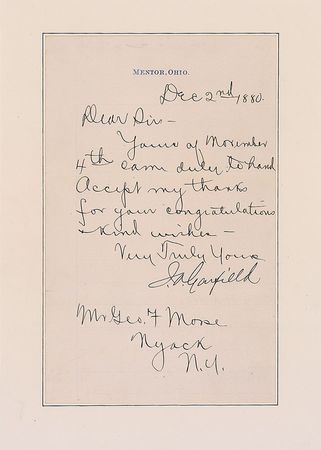 MENTOR, OHIO.
Dec 2nd 1880.
Dear Sir—
Yours of November
4th came duly to hand
Accept my thanks
for your congratulations
& kind wishes—
Very Truly Yours
J.A. Garfield
Mr Geo. F Morse
Nyack
N.Y.